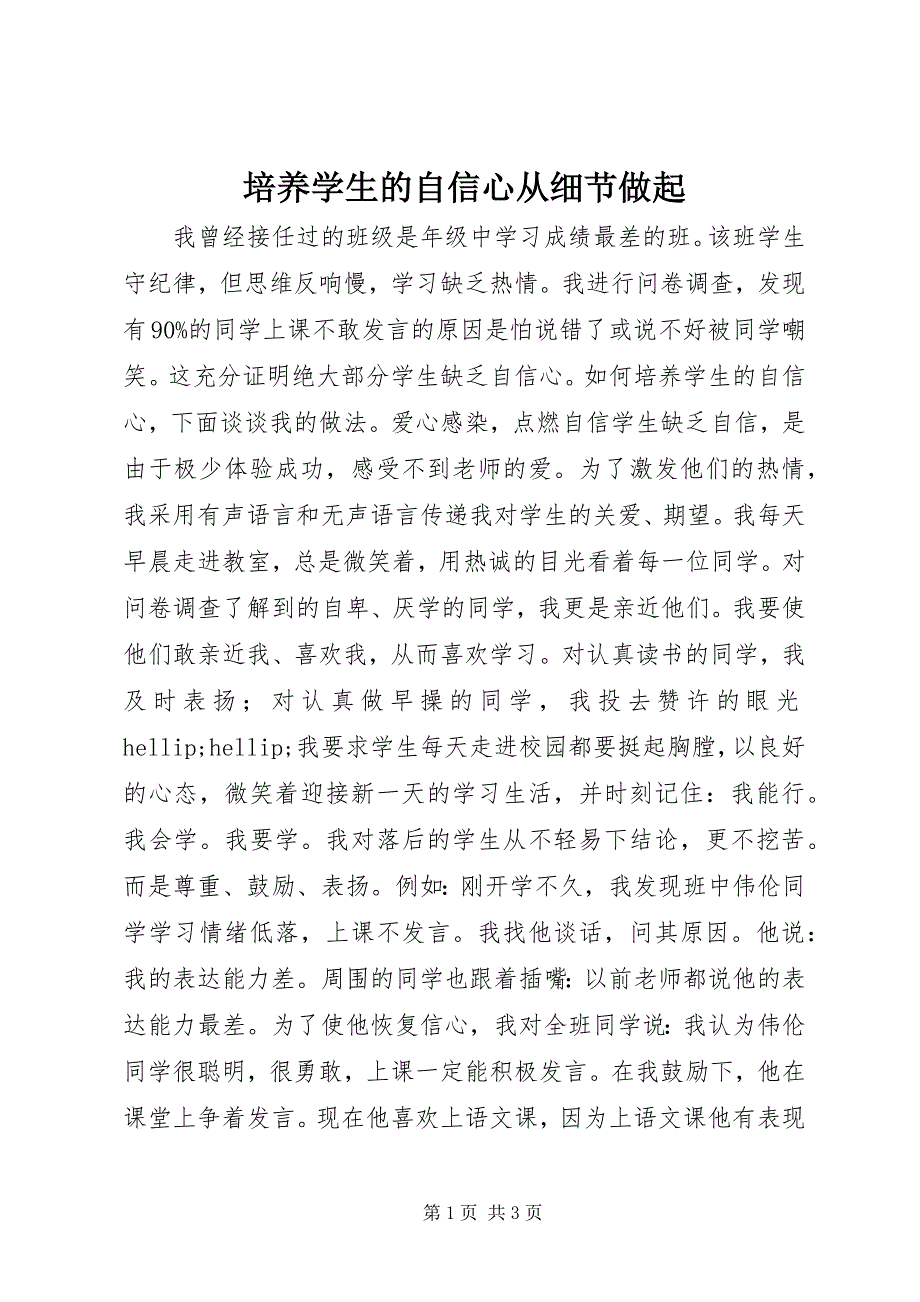 培养学生的自信心从细节做起
我曾经接任过的班级是年级中学习成绩最差的班。该班学生
守纪律，但思维反响慢，学习缺乏热情。我进行问卷调查，发现
有90%的同学上课不敢发言的原因是怕说错了或说不好被同学嘲
笑。这充分证明绝大部分学生缺乏自信心。如何培养学生的自信
心，下面谈谈我的做法。爱心感染，点燃自信学生缺乏自信，是
由于极少体验成功，感受不到老师的爱。为了激发他们的热情，
我采用有声语言和无声语言传递我对学生的关爱、期望。我每天
早晨走进教室，总是微笑着，用热诚的目光看着每一位同学。对
问卷调查了解到的自卑、厌学的同学，我更是亲近他们。我要使
他们敢亲近我、喜欢我，从而喜欢学习。对认真读书的同学，我
及时表扬；对认真做早操的同学，我投去赞许的眼光
hellip;hellip;我要求学生每天走进校园都要挺起胸膛，以良好
的心态，微笑着迎接新一天的学习生活，并时刻记住：我能行。
我会学。我要学。我对落后的学生从不轻易下结论，更不挖苦。
而是尊重、鼓励、表扬。例如：刚开学不久，我发现班中伟伦同
学学习情绪低落，上课不发言。我找他谈话，问其原因。他说：
我的表达能力差。周围的同学也跟着插嘴：以前老师都说他的表
达能力最差。为了使他恢复信心，我对全班同学说：我认为伟伦
同学很聪明，很勇敢，上课一定能积极发言。在我鼓励下，他在
课堂上争着发言。现在他喜欢上语文课，因为上语文课他有表现
第 1 页 共 3 页